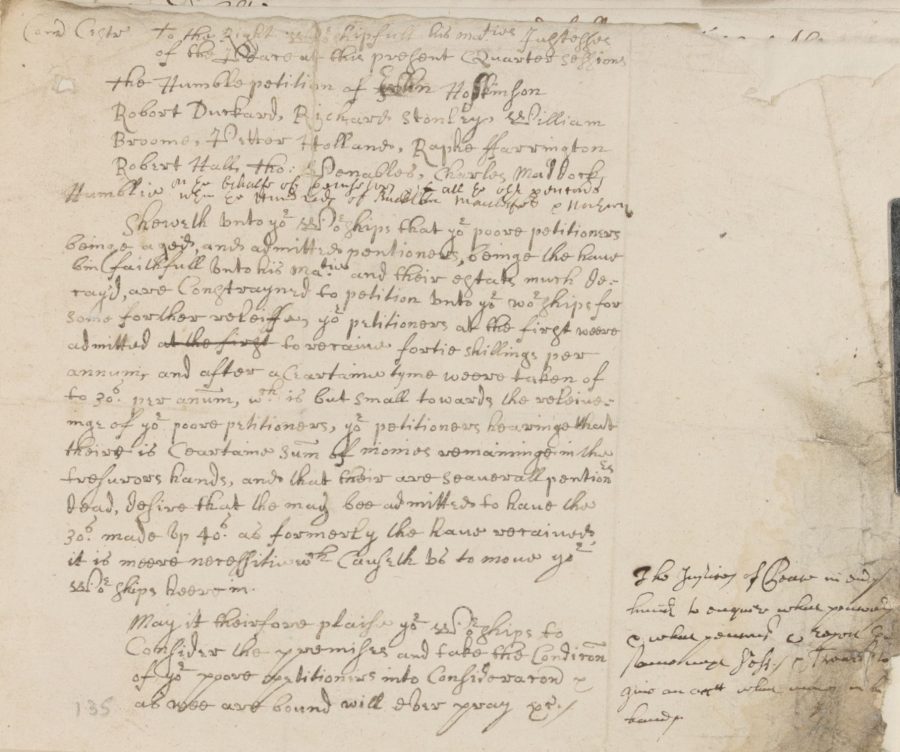 Com Cestr To the Right Wor:shipfull his maties Justesses
of the Peace at this present Quarter Sessions
the Humble petition of John Hoskinson
Robort Duckard, Richard Stonley, William
Broome, Pitter Holland, Raphe ffarrington
Robert Hall, Tho: Venables, Charles Maddock,
Humblie on ye behalfe of & all ye oth pencons
wthin ye Hundreds of Macclesfeld &
Sheweth Unto yor Worships that yor poore petitioners
beinge aged, and admitted pentioners, beinge the have
bin faithfull Unto his Matie and their estats much de-
cayd, are Constrayned to petition Unto yor worships for
some forther releiffe, yor petitioners at the first weere
admitted at the first to recaive fortie shillings per
annum, and after a Ceartaine tyme weere taken of
to 30s. per anum, wch is but small towards the releive-
inge of yor poore petitioners, yor petitioners hearinge that
theire is Ceartaine sum of monies remaininge in the
tresurors hands, and that their are seaverall pentiones
dead, desire that the may bee admitted to have the
30s. made Up 40s. as formerly the have recaived
it is meere necessitie wch Causeth Us to move yor
Worships heerein.
May it theirfore plaise yor Worships to
Consider the premises and take the Condicon
of yor poore petitioners into Consideracon &
as wee are bound will Ever pray &c./
135
The Justices of Peace in every
hundred to enquire what pencons
& what & report
Sess: & Treasr to
give an acctt what money in his
hands